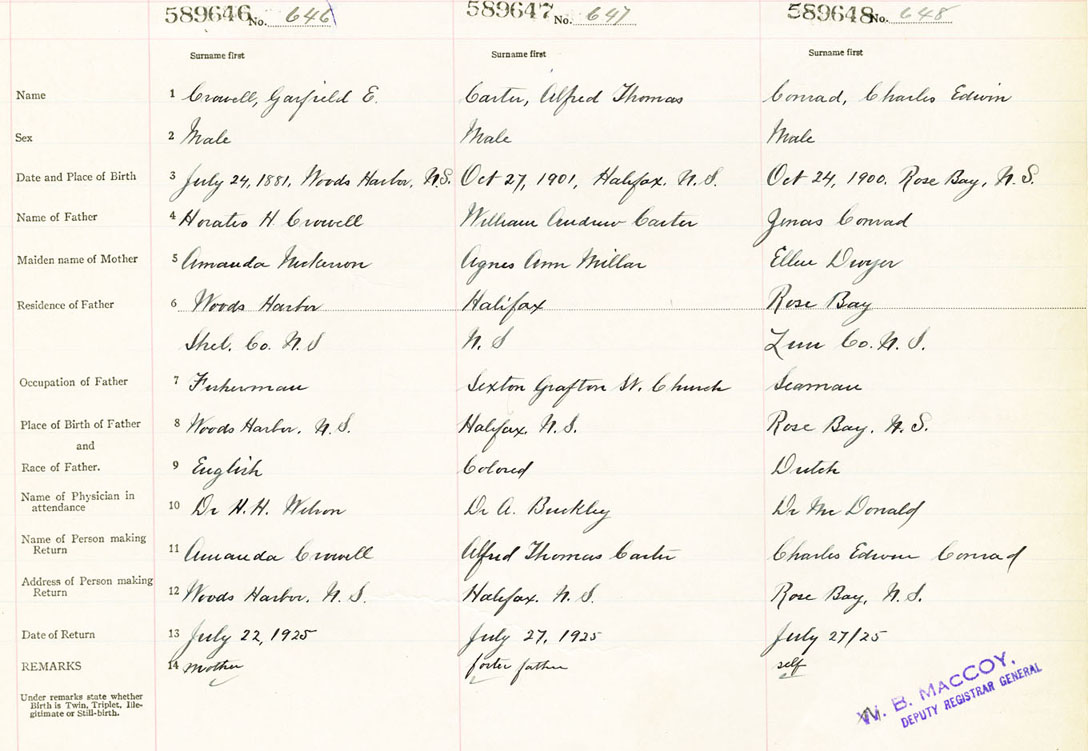 589646 No. 646 589647 No. 647 589648 No. 648
Surname first Surname first Surname first
Name 1 Crowell, Garfield E. Carter, Alfred Thomas Conrad, Charles Edwin
Sex 2 Male Male Male
Date and Place of Birth 3 July 24, 1881, Woods Harbor, N.S. Oct 27, 1901, Halifax, N.S. Oct 24, 1900. Rose Bay, N.S.
Name of Father 4 Horatio H. Crowell William Andrew Carter Jonas Conrad
Maiden name of Mother 5 Amanda Nickerson Agnes Ann Millar Ellen Dwyer
Residence of Father 6 Woods Harbor Halifax Rose Bay
Shel. Co. N.S N.S Lun Co. N.S.
Occupation of Father 7 Fisherman Sexton Grafton St. Church Seaman
Place of Birth of Father 8 Woods Harbor, N.S. Halifax, N.S. Rose Bay, N.S.
and
Race of Father. 9 English Colored Dutch
Name of Physician in
attendance 10 Dr H. H. Wilson Dr A. Buckley Dr Mc Donald
Name of Person making
Return 11 Amanda Crowell Alfred Thomas Carter Charles Edwin Conrad
Address of Person making
Return 12 Woods Harbor, N.S. Halifax. N.S. Rose Bay, N.S.
Date of Return 13 July 22, 1925 July 27, 1925 July 27/25
REMARKS 14 mother foster father self
Under remarks state whether
Birth is Twin, Triplet, Ille-
gitimate or Still-birth.
W. B. MACCOY,
DEPUTY REGISTRAR GENERAL